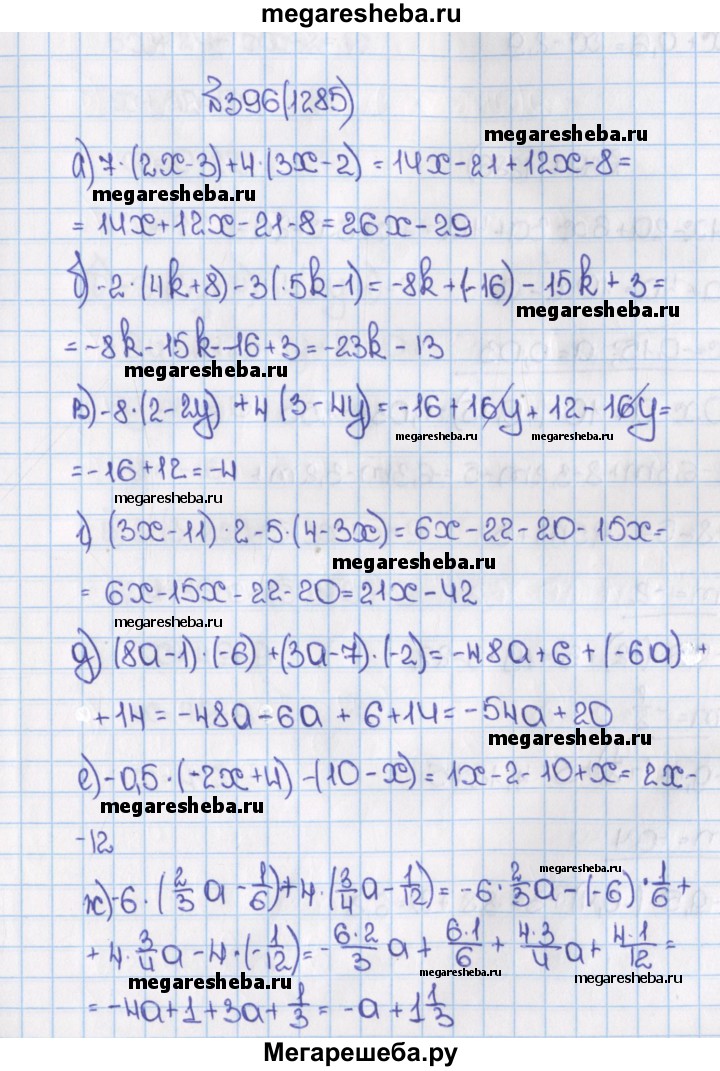 megaresheba.ru
№396(1285)
megaresheba.ru
а) 7·(2x-3)+4·(3x-2) = 14x-21+12x-8=
megaresheba.ru
= 14x+12x-21-8=26x-29
б) -2·(4k+8)-3(·5k-1)= -8k+(-16) - 15k+3=
megaresheba.ru
= -8k-15k-16+3=-23k-13
megaresheba.ru
в) -8·(2-2y) +4(3-4y)= -16+16y+12-16y=
megaresheba.ru megaresheba.ru
= -16+12=-4
megaresheba.ru
г) (3x-11)·2-5·(4-3x)= 6x-22-20-15x=
megaresheba.ru
= 6x-15x-22-20=21x-42
megaresheba.ru
д) (8a-1)·(-6)+(3a-7)·(-2)= -48a+6+(-6a) +
+14= -48a-6a + 6+14= -54a+20
megaresheba.ru
е) -0,5·(-2x+4) -(10-x)= 1x-2-10+x= 2x-
megaresheba.ru
-12
megaresheba.ru
ж) -6·(2/3 a - 1/6)+4·(3/4 a - 1/12)= -6·2/3 a-(-6)·1/6+
+4·3/4 a-4·(-1/12)= -6·2/3 a+ 6·1/6 + 4·3/4 a+ 4·1/12 =
megaresheba.ru megaresheba.ru
= -4a+1+3a+1/3= -a+1 1/3
megaresheba.ru
Мегарешеба.ру